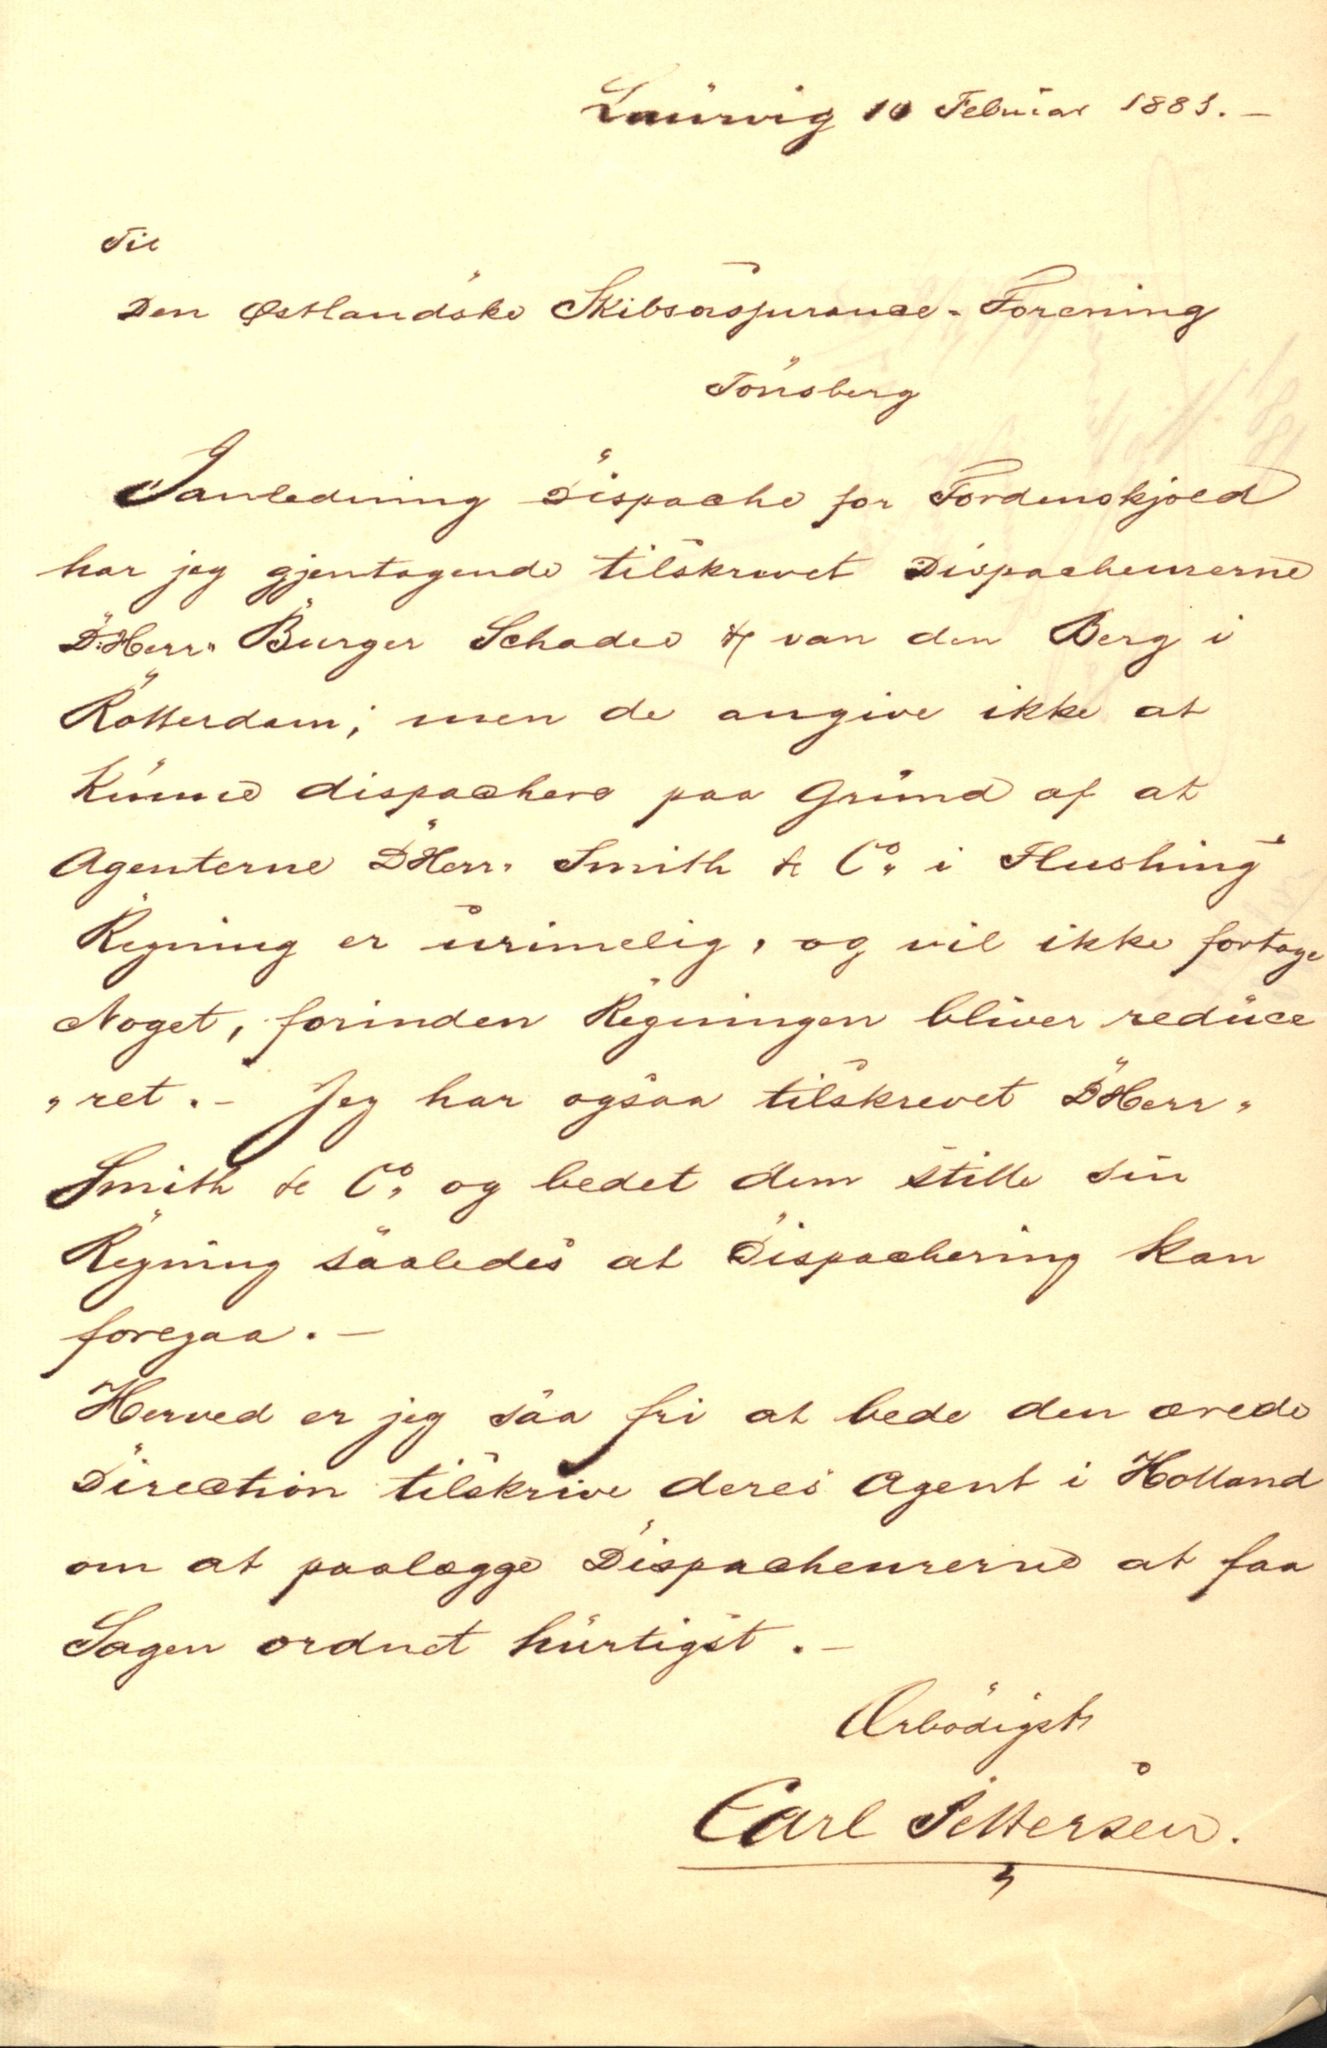 Laurvig 10 Februar 1883. —
Til
Den Østlandske Skibsassurance-Forening
Tönsberg
I anledning Dispache for Tordenskjold
har jeg gjentagende tilskrevet Dispacheurerne
D'Herr. Burger Schadee & van den Berg i
Rotterdam; men de angive ikke at
kunne dispachere paa Grund af at
Agenterne D'Herr. Smith & Co. i Flushing
Regning er urimelig, og vil ikke fortage
Noget, forinden Regningen bliver reduce
„ret. — Jeg har ogsaa tilskrevet D'Herr.
Smith & Co. og bedet dem stille sin
Regning saaledes at Dispachering kan
foregaa. —
Herved er jeg saa fri at bede den ærede
Direction tilskrive deres Agent i Holland
om at paalægge Dispacheurerne at faa
Sagen ordnet hurtigst. —
Ærbödigst
Carl Pettersen.